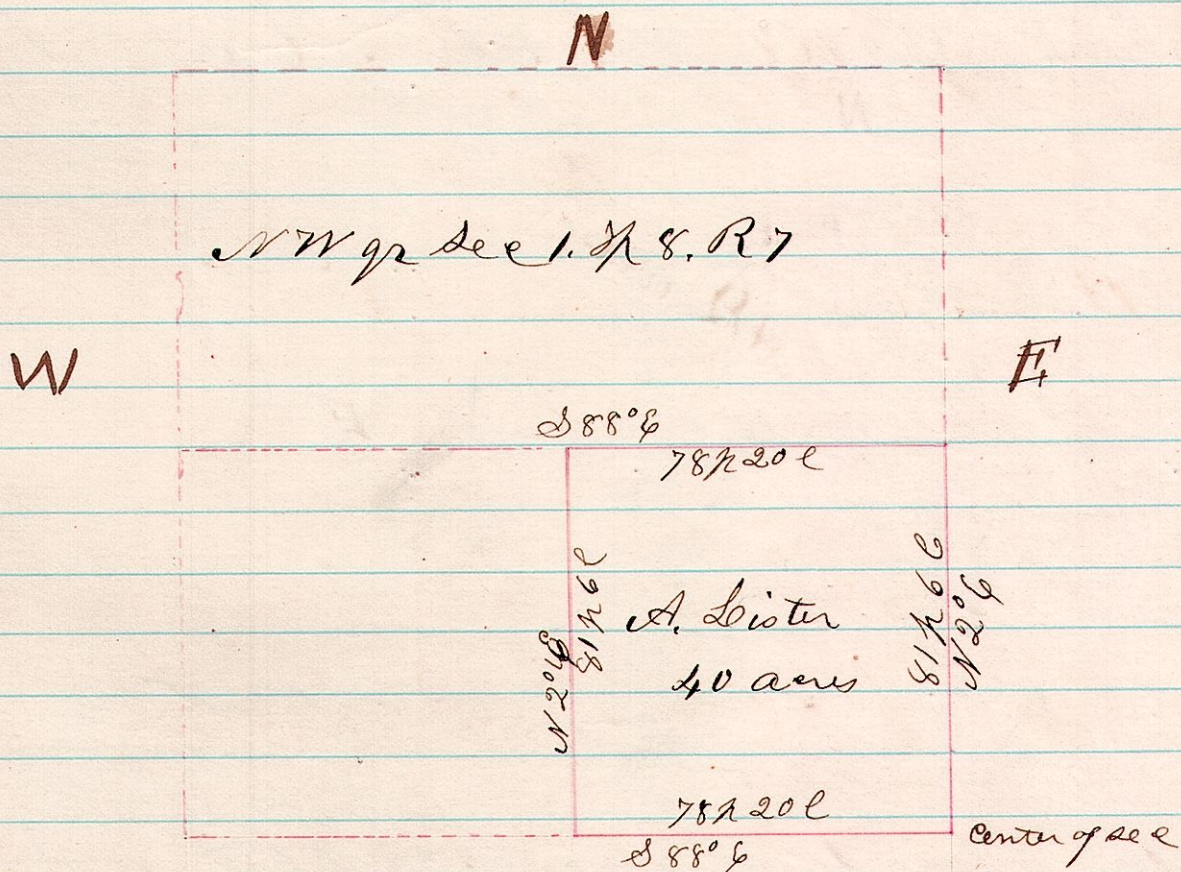 N
NW qr Sec 1. Tp 8. R 7
W
E
S 88° E
78p 20 l
N 2° E
81p 6 l
A. Lister
40 acres
81p 6 l
N 2° E
78p 20 l
S 88° E
Center of Sec